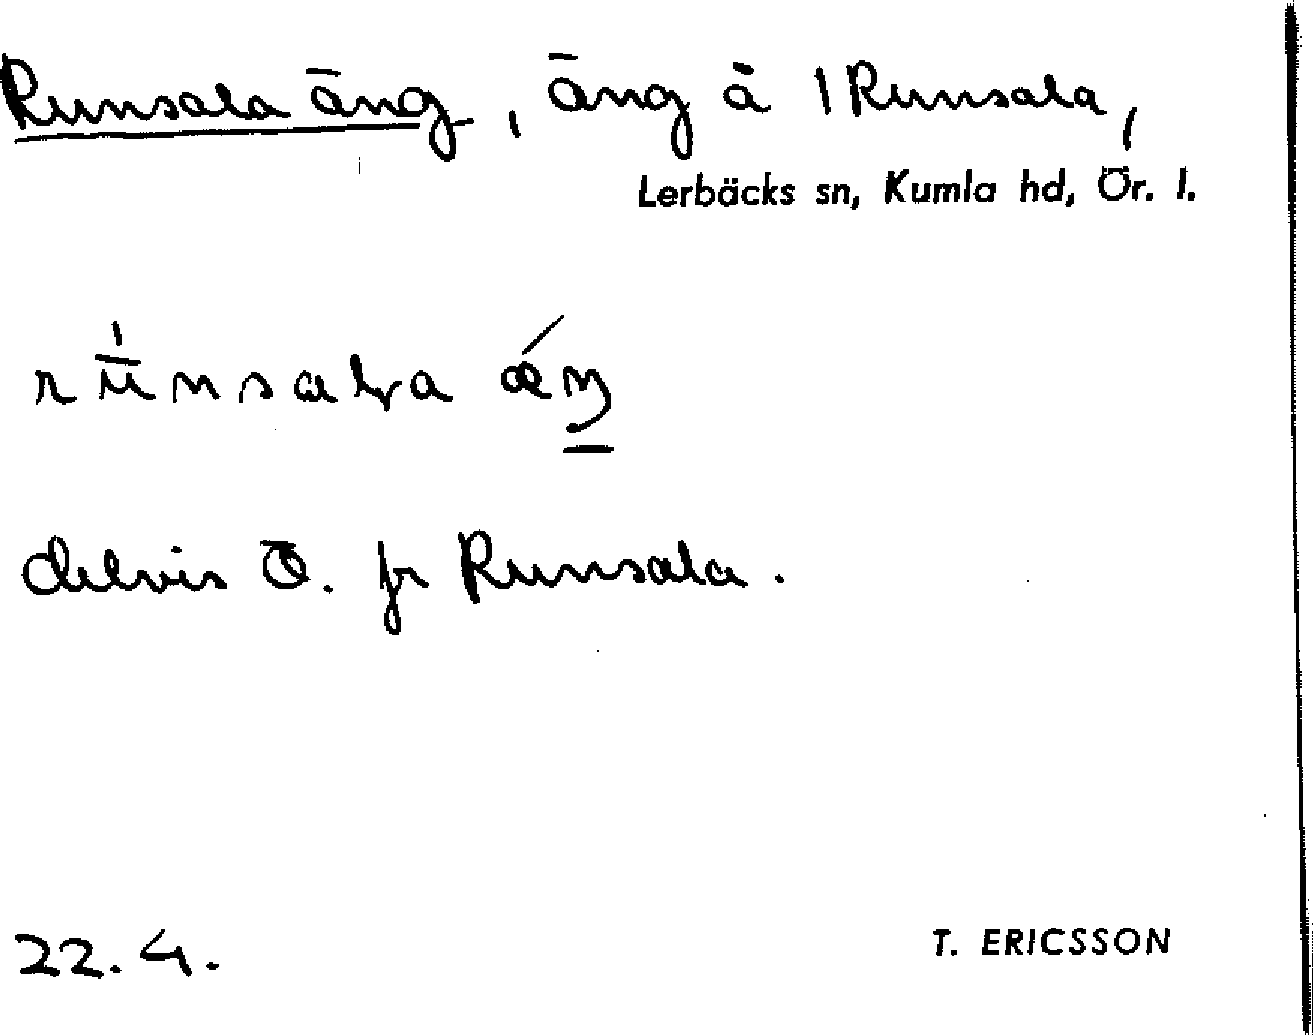 Runsala äng, äng å 1 Runsala,
Lerbäcks sn, Kumla hd, Ör. l.
rūnsala ǽŋ
delvis Ö. fr Runsala.
22.4.
T. ERICSSON